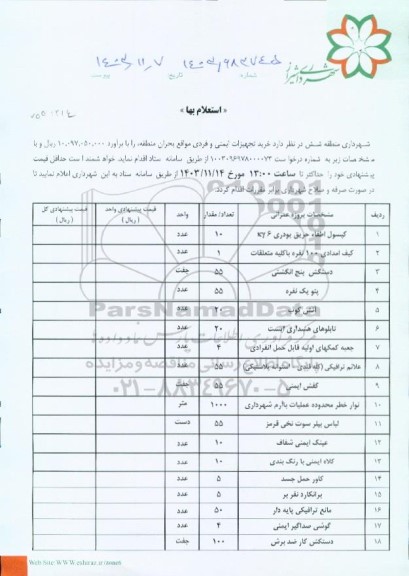 شهرداری شیراز
شماره
تاریخ ۱۴۰۳/۱۱/۷
پیوست
« استعلام بها »
شهرداری منطقه شش در نظر دارد خرید تجهیزات ایمنی و فردی مواقع بحران منطقه، را با برآورد ۱۰,۰۹۷,۰۵۰,۰۰۰ ریال و با
مشخصات زیر به شماره درخواست ۱۰۰۳۰۹۶۹۷۸۰۰۰۰۷۳ از طریق سامانه ستاد اقدام نماید. خواهشمند است حداقل قیمت
پیشنهادی خود را حداکثر تا ساعت ۱۳:۰۰ مورخ ۱۴۰۳/۱۱/۱۴ از طریق سامانه ستاد به این شهرداری اعلام نمایید تا
در صورت صرفه و صلاح شهرداری برابر مقررات اقدام گردد.
ردیف مشخصات پروژه عمرانی تعداد/مقدار واحد قیمت پیشنهادی واحد (ریال) قیمت پیشنهادی کل (ریال)
۱ کپسول اطفاء حریق پودری ۶ کیلویی ۱۰ عدد
۲ کیف امدادی ۱۰۰ نفره با کلیه متعلقات ۱ عدد
۳ دستکش پنج انگشتی ۵۵ جفت
۴ پتو یک نفره ۵۵ عدد
۵ ۲۰ عدد
۶ تابلوهای هشداری ایست ۲۰ عدد
۷ جعبه کمکهای اولیه قابل حمل انفرادی ۴ عدد
۸ علائم ترافیکی (کله قندی - استوانه پلاستیکی) ۵۵ عدد
۹ کفش ایمنی ۵۵ جفت
۱۰ نوار خطر محدوده عملیات با آرم شهرداری ۴۰۰۰ متر
۱۱ لباس بیلر سوت نخی قرمز ۵۵ دست
۱۲ عینک ایمنی شفاف ۱۰ عدد
۱۳ کلاه ایمنی با رنگ بندی ۱۰ عدد
۱۴ کاور حمل جسد ۵ عدد
۱۵ برانکارد نفر بر ۵ عدد
۱۶ مانع ترافیکی پایه دار ۵۰ عدد
۱۷ گوشی صداگیر ایمنی ۴ عدد
۱۸ دستکش کار ضد برش ۱۰۰ جفت
ParsNamadData
۰۲۱-۸۸۳۴۹۶۷۰-۵